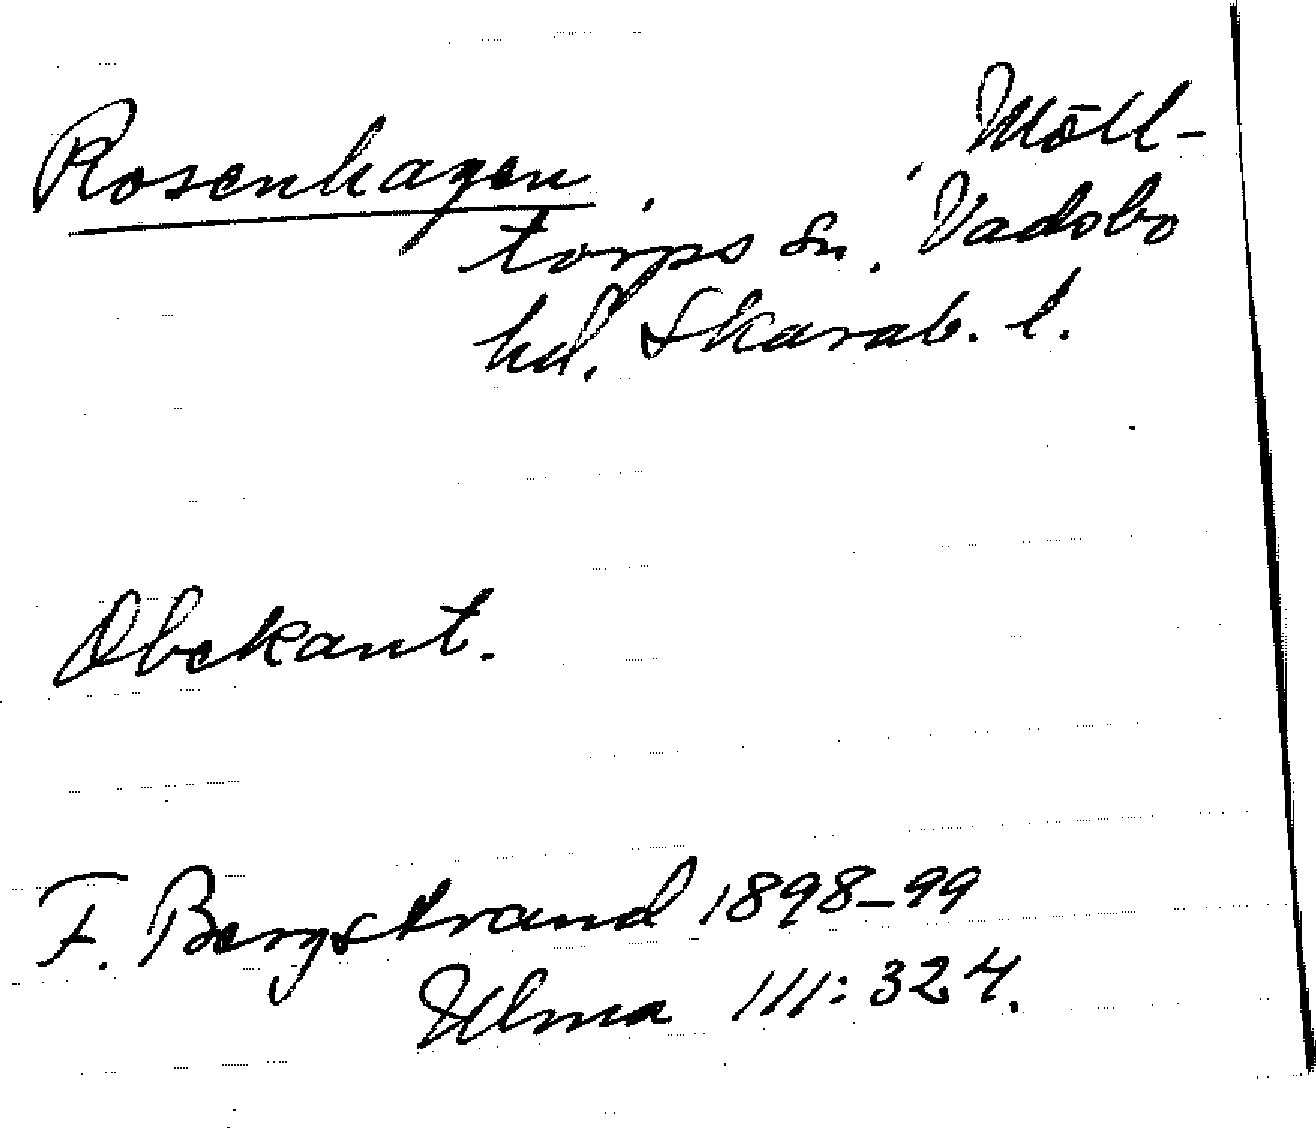 Rosenhagen, Möll-
torps sn. Vadsbo
hd. Skarab. l.
Obekant.
F. Bergstrand 1898-99
Ulma 111:324.